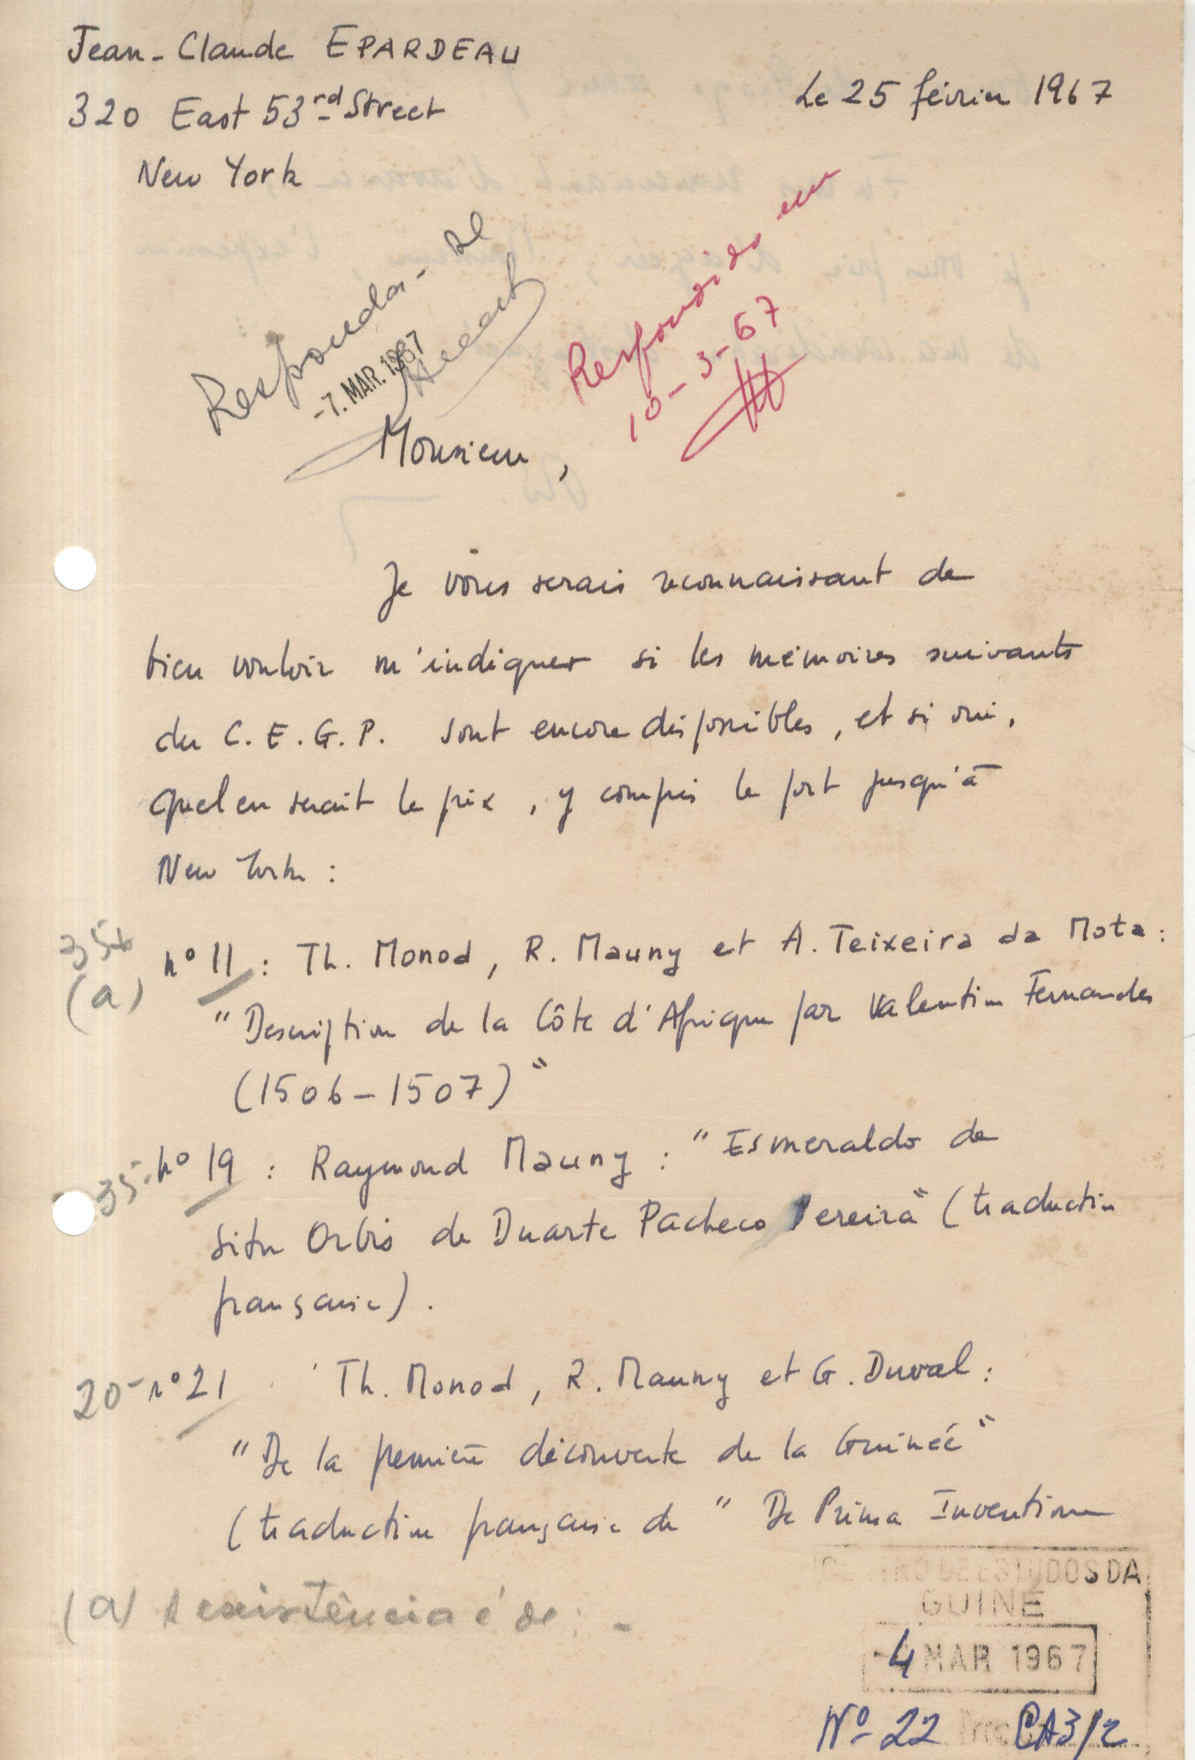 Jean-Claude EPARDEAU
320 East 53rd Street
New York
Le 25 février 1967
Responda-se
-7. MAR. 1967
Respondido em
10-3-67
Monsieur,
Je vous serais reconnaissant de
bien vouloir m'indiquer si les mémoires suivants
du C.E.G.P. sont encore disponibles, et si oui,
quel en serait le prix, y compris le port jusqu'à
New York :
35
(a)
n° 11 : Th. Monod, R. Mauny et A. Teixeira da Mota :
"Description de la Côte d'Afrique par Valentim Fernandes
(1506-1507)"
35- n° 19 : Raymond Mauny : "Esmeraldo de
situ Orbis de Duarte Pacheco Pereira" (traduction
française).
20- n° 21 Th. Monod, R. Mauny et G. Duval :
"De la première découverte de la Guinée"
(traduction française de "De Prima Inventione
(a) A existência é de: -
CENTRO DE ESTUDOS DA
GUINÉ
-4 MAR 1967
Nº 22 CA3/2